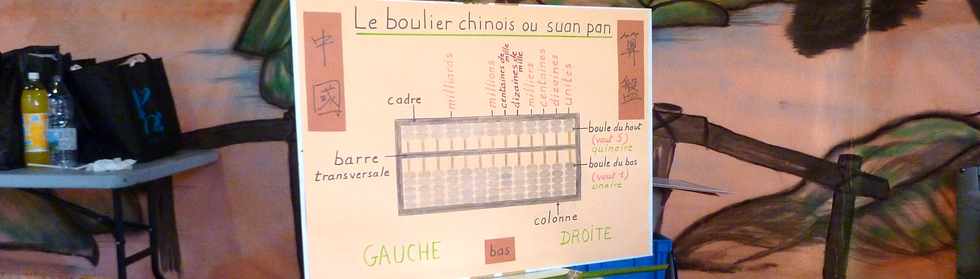 Le boulier chinois ou suan pan
中
國
算
盤
milliards
millions
centaines de mille
dizaines de mille
milliers
centaines
dizaines
unités
cadre
barre
transversale
boule du haut
(vaut 5)
quinaire
boule du bas
(vaut 1)
unaire
colonne
GAUCHE
bas
DROITE